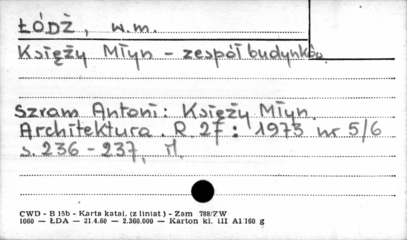 ŁÓDŹ, w.m.
Księży Młyn - zespół budynków
Szram Antoni: Księży Młyn.
Architektura. R. 27: 1973 nr 5/6
s. 236-237, il.
CWD - B 15b - Karta katal. (z liniat.) - Zam 788/ZW
1060 — ŁDA — 21.4.60 — 2.360.000 — Karton kl. III A1 160 g